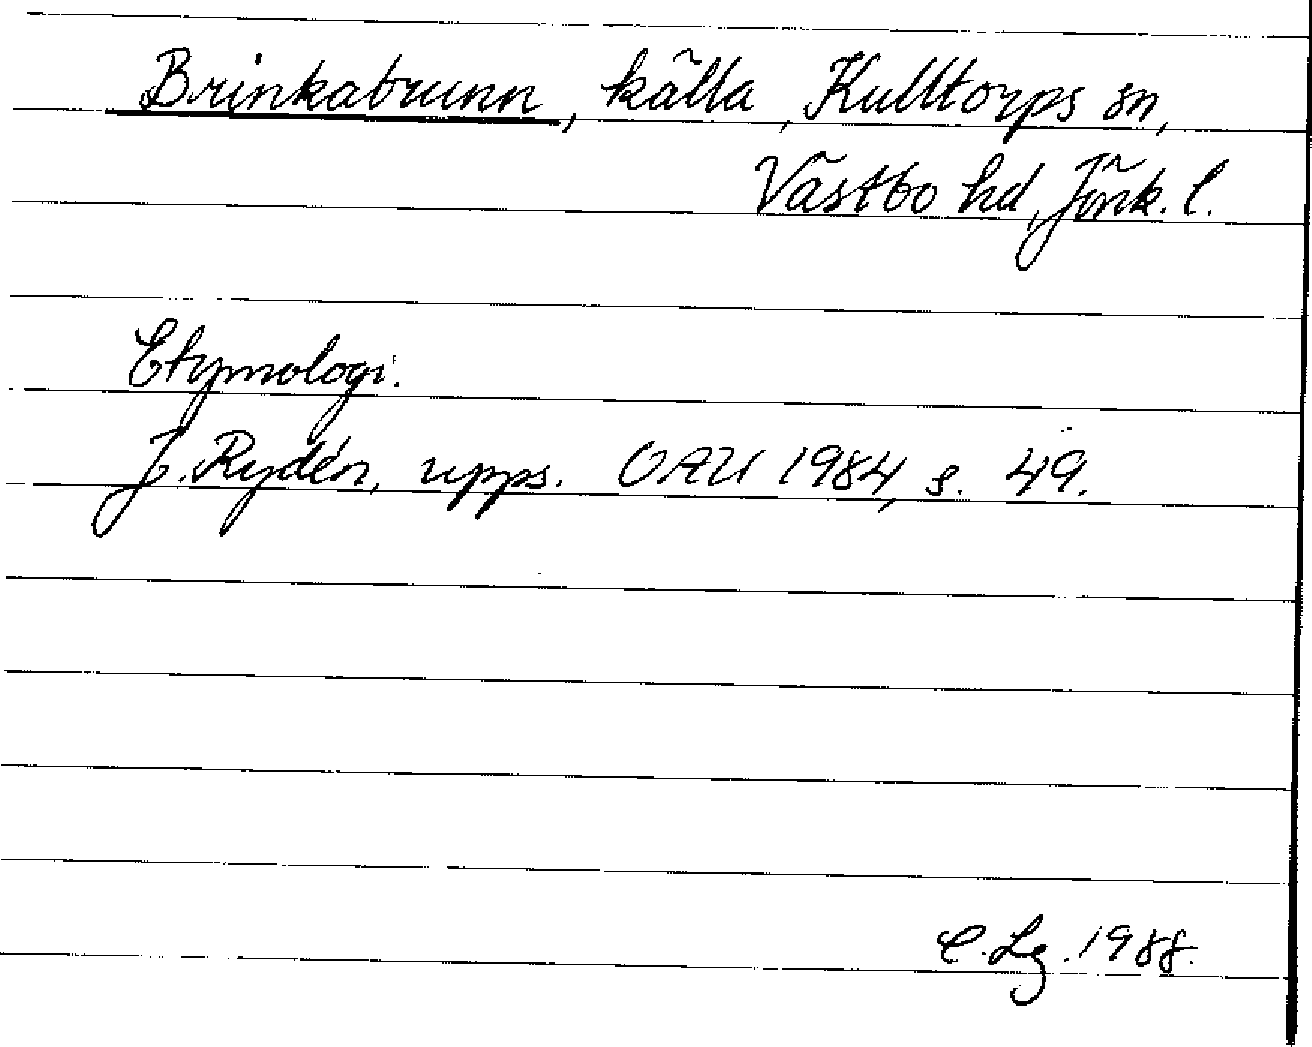 Brinkabrunn, källa, Kulltorps sn,
Västbo hd, Jönk. l.
Etymologi.
J. Rydén, upps. OAU 1984, s. 49.
C. Lg. 1988.